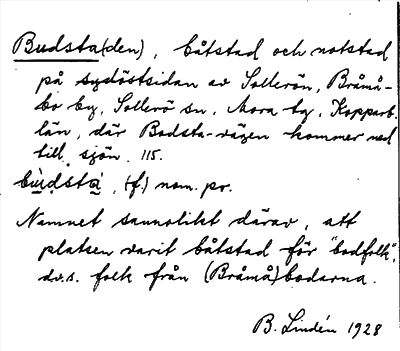 Budsta(den), båtstad och notstad
på sydöstsidan av Sollerön, Bråmå-
bo by, Sollerö sn, Mora tg, Kopparb.
län, där Bodsta-vägen kommer ned
till sjön. 115.
bùdstà, (f) nom. pr.
Namnet sannolikt därav, att
platsen varit båtstad för "bodfolk",
dvs. folk från (Bråmå)bodarna.
B. Lindén 1928